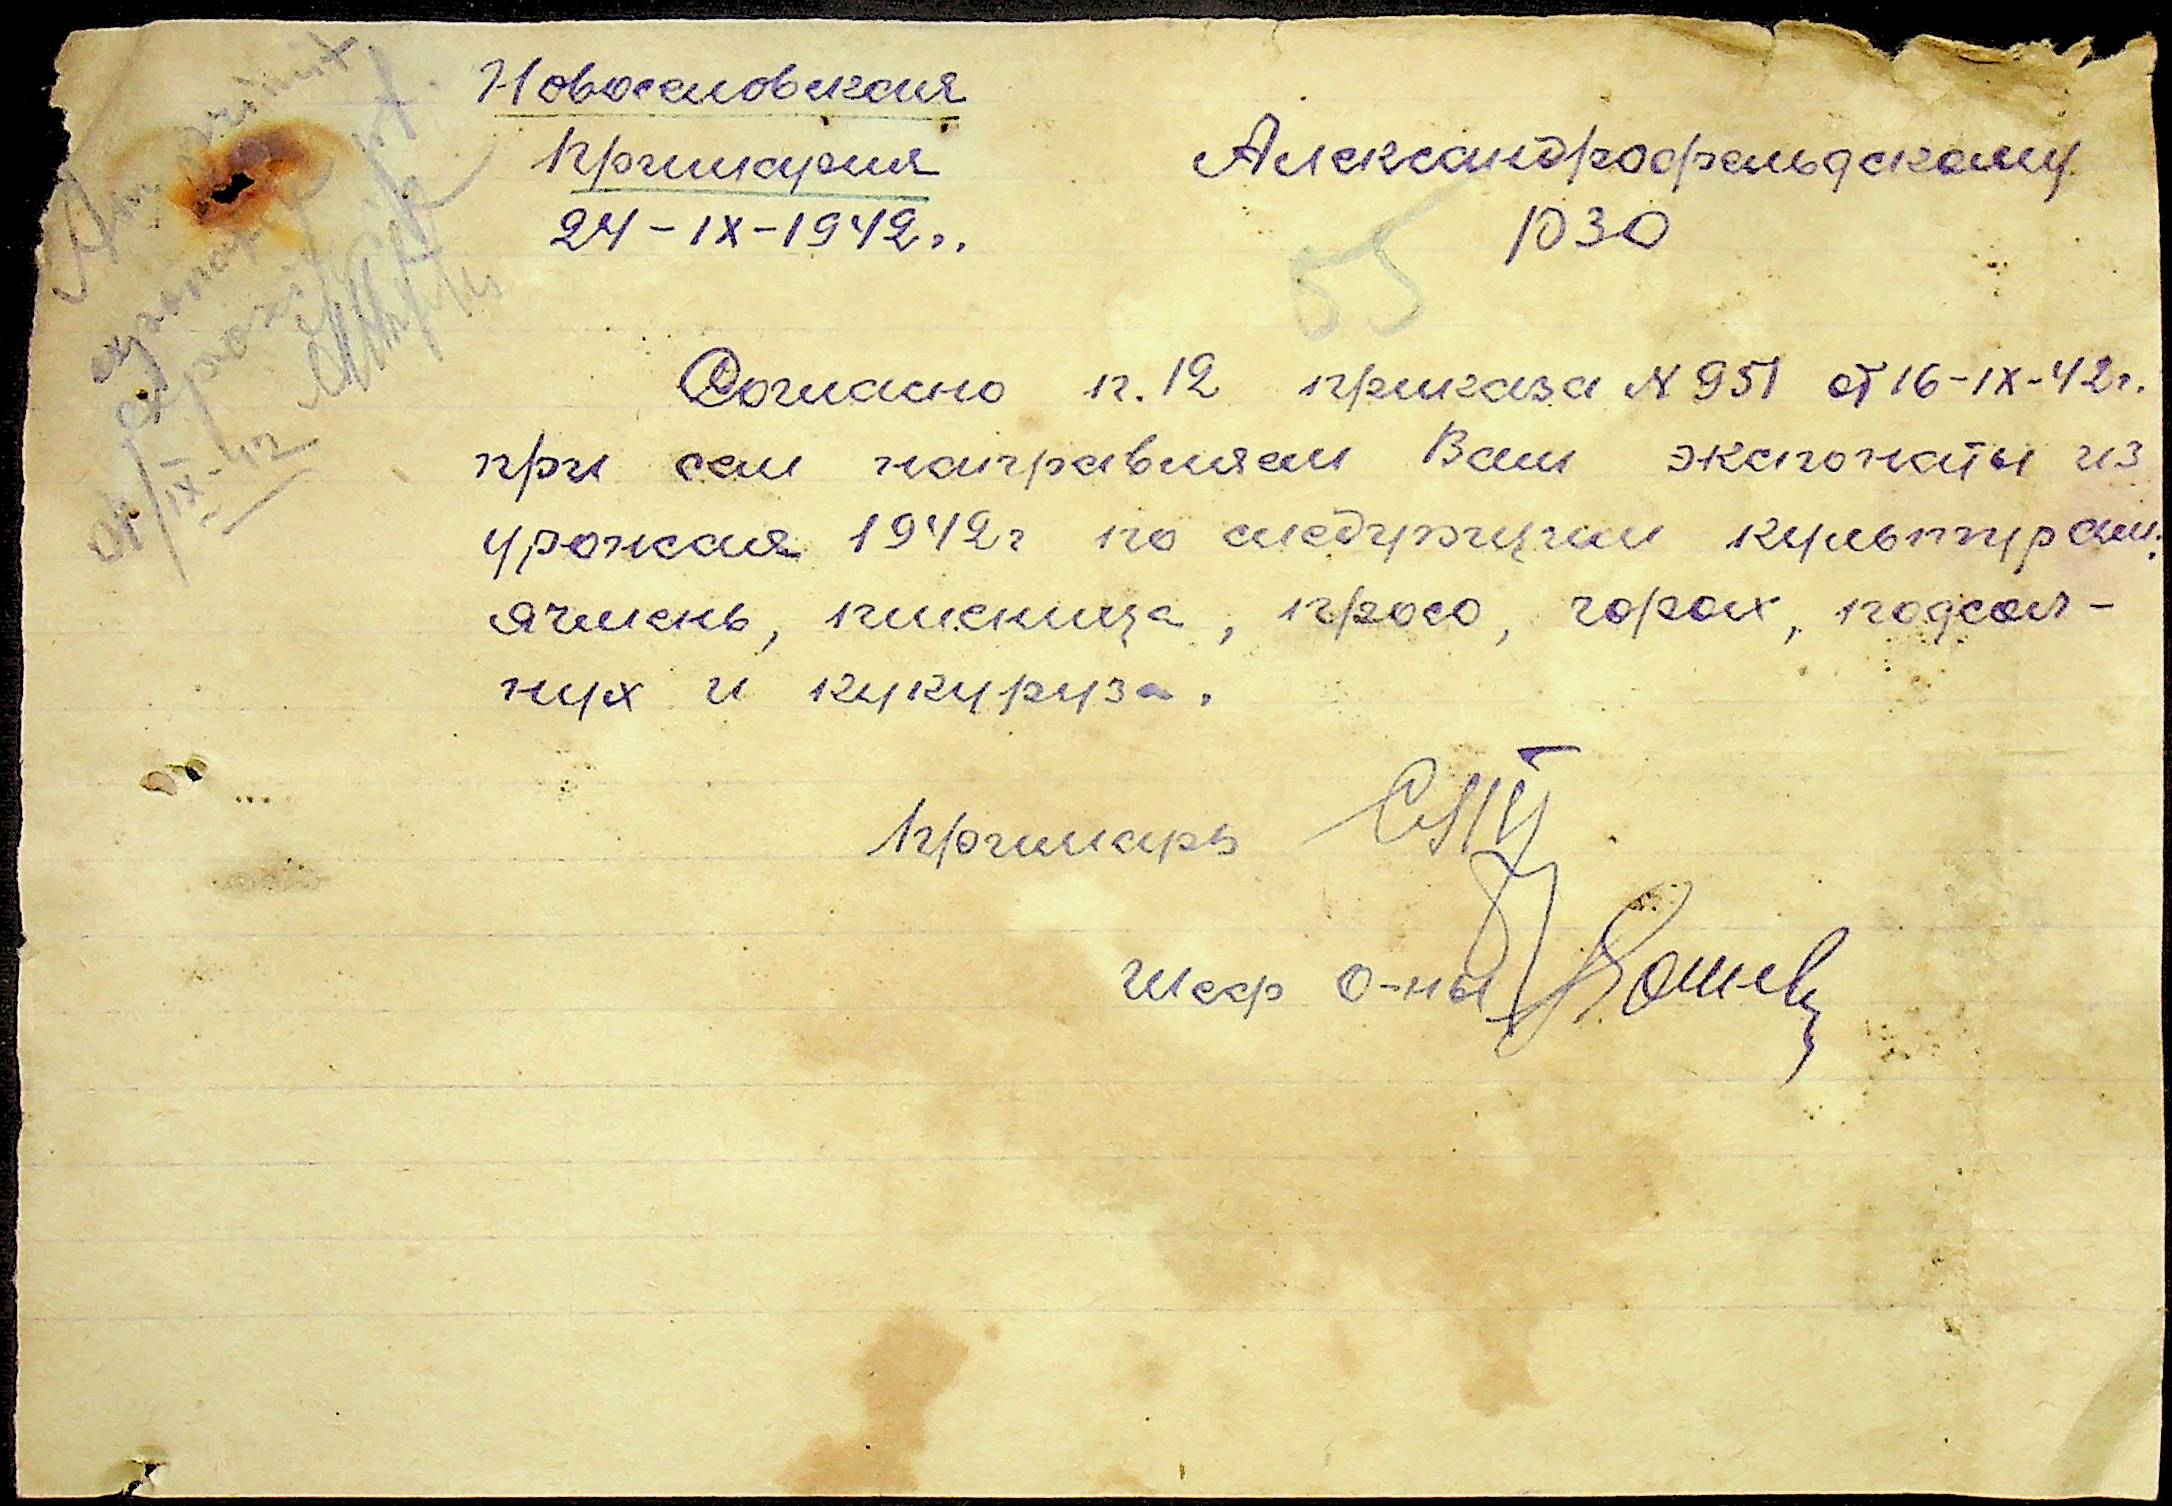 Новоселовская
Примария
24-IX-1942г.
Александрофельдскому
РЗО
55
Согласно п.12 приказа N 951 от 16-IX-42г.
при сем направляем Вам экспонаты из
урожая 1942г по следующим культурам:
ячмень, пшеница, просо, горох, подсол-
нух и кукуруза.
Примарь
Шеф о-ны
24/IX-42